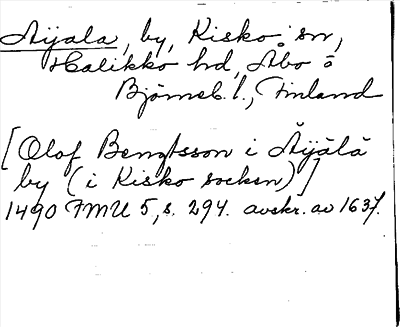 Äijälä, by, Kisko sn,
Halikko hd, Åbo o
Björneb. l., Finland
[Olof Bengtsson i Äijälä
by (i Kisko socken)]
1490 FMU 5, s. 294. avskr. av 1637.